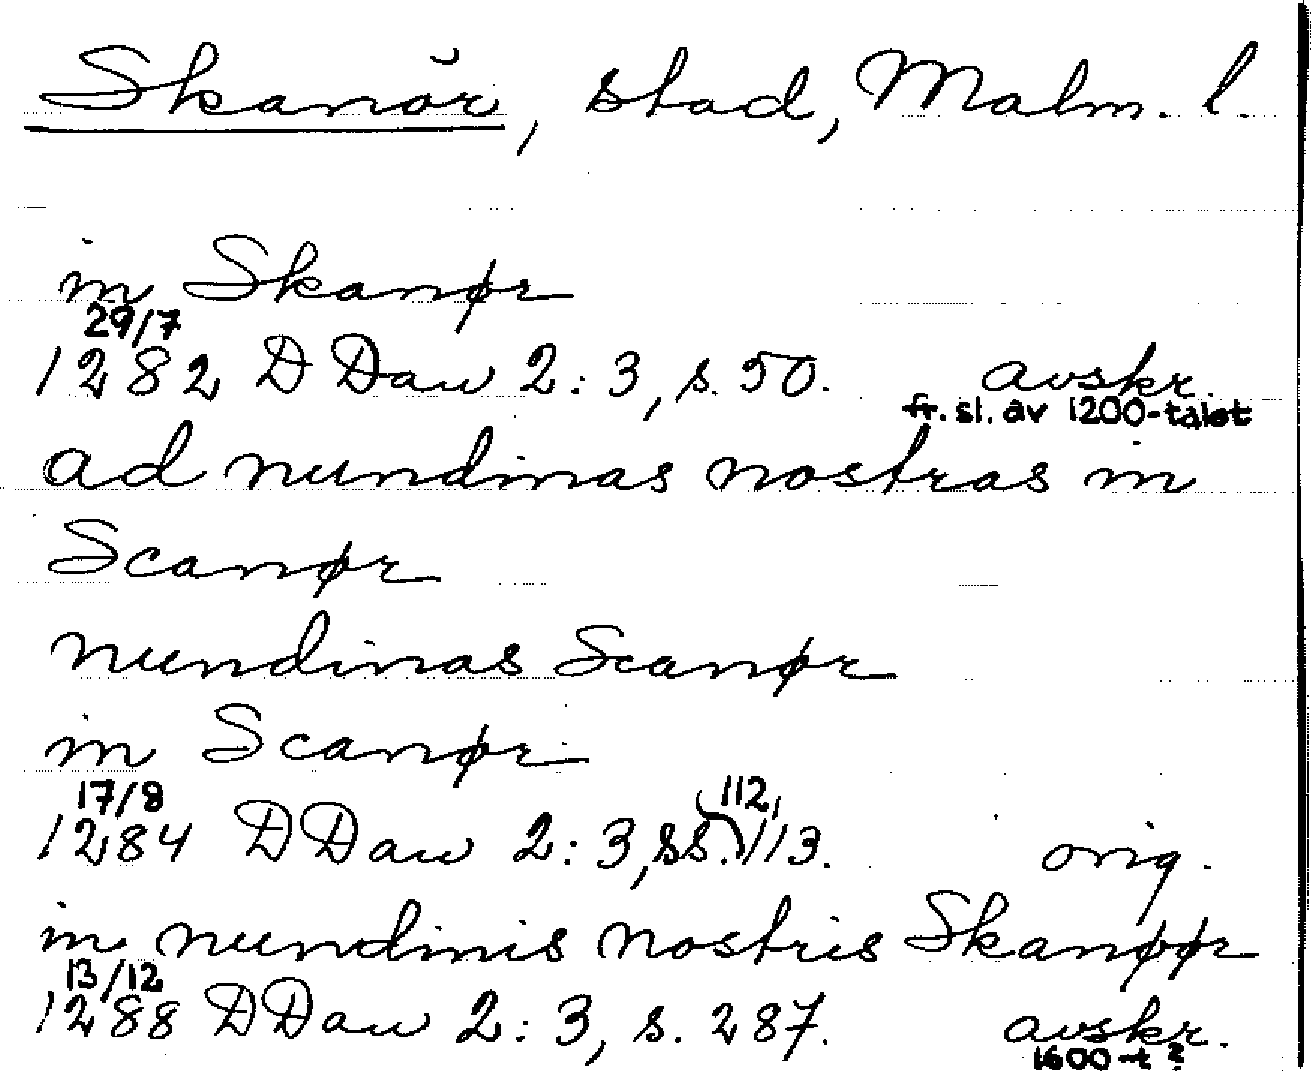 Skanör, stad, Malm. l.
in Skanør
29/7
1282 DDan 2:3, s. 50. avskr.
fr. sl. av 1200-talet
ad nundinas nostras in
Scanør
nundinas Scanør
in Scanør
17/8 112,
1284 DDan 2:3, ss. 113. orig.
in nundinis nostris Skanøør
13/12
1288 DDan 2:3, s. 287. avskr.
1600-t?